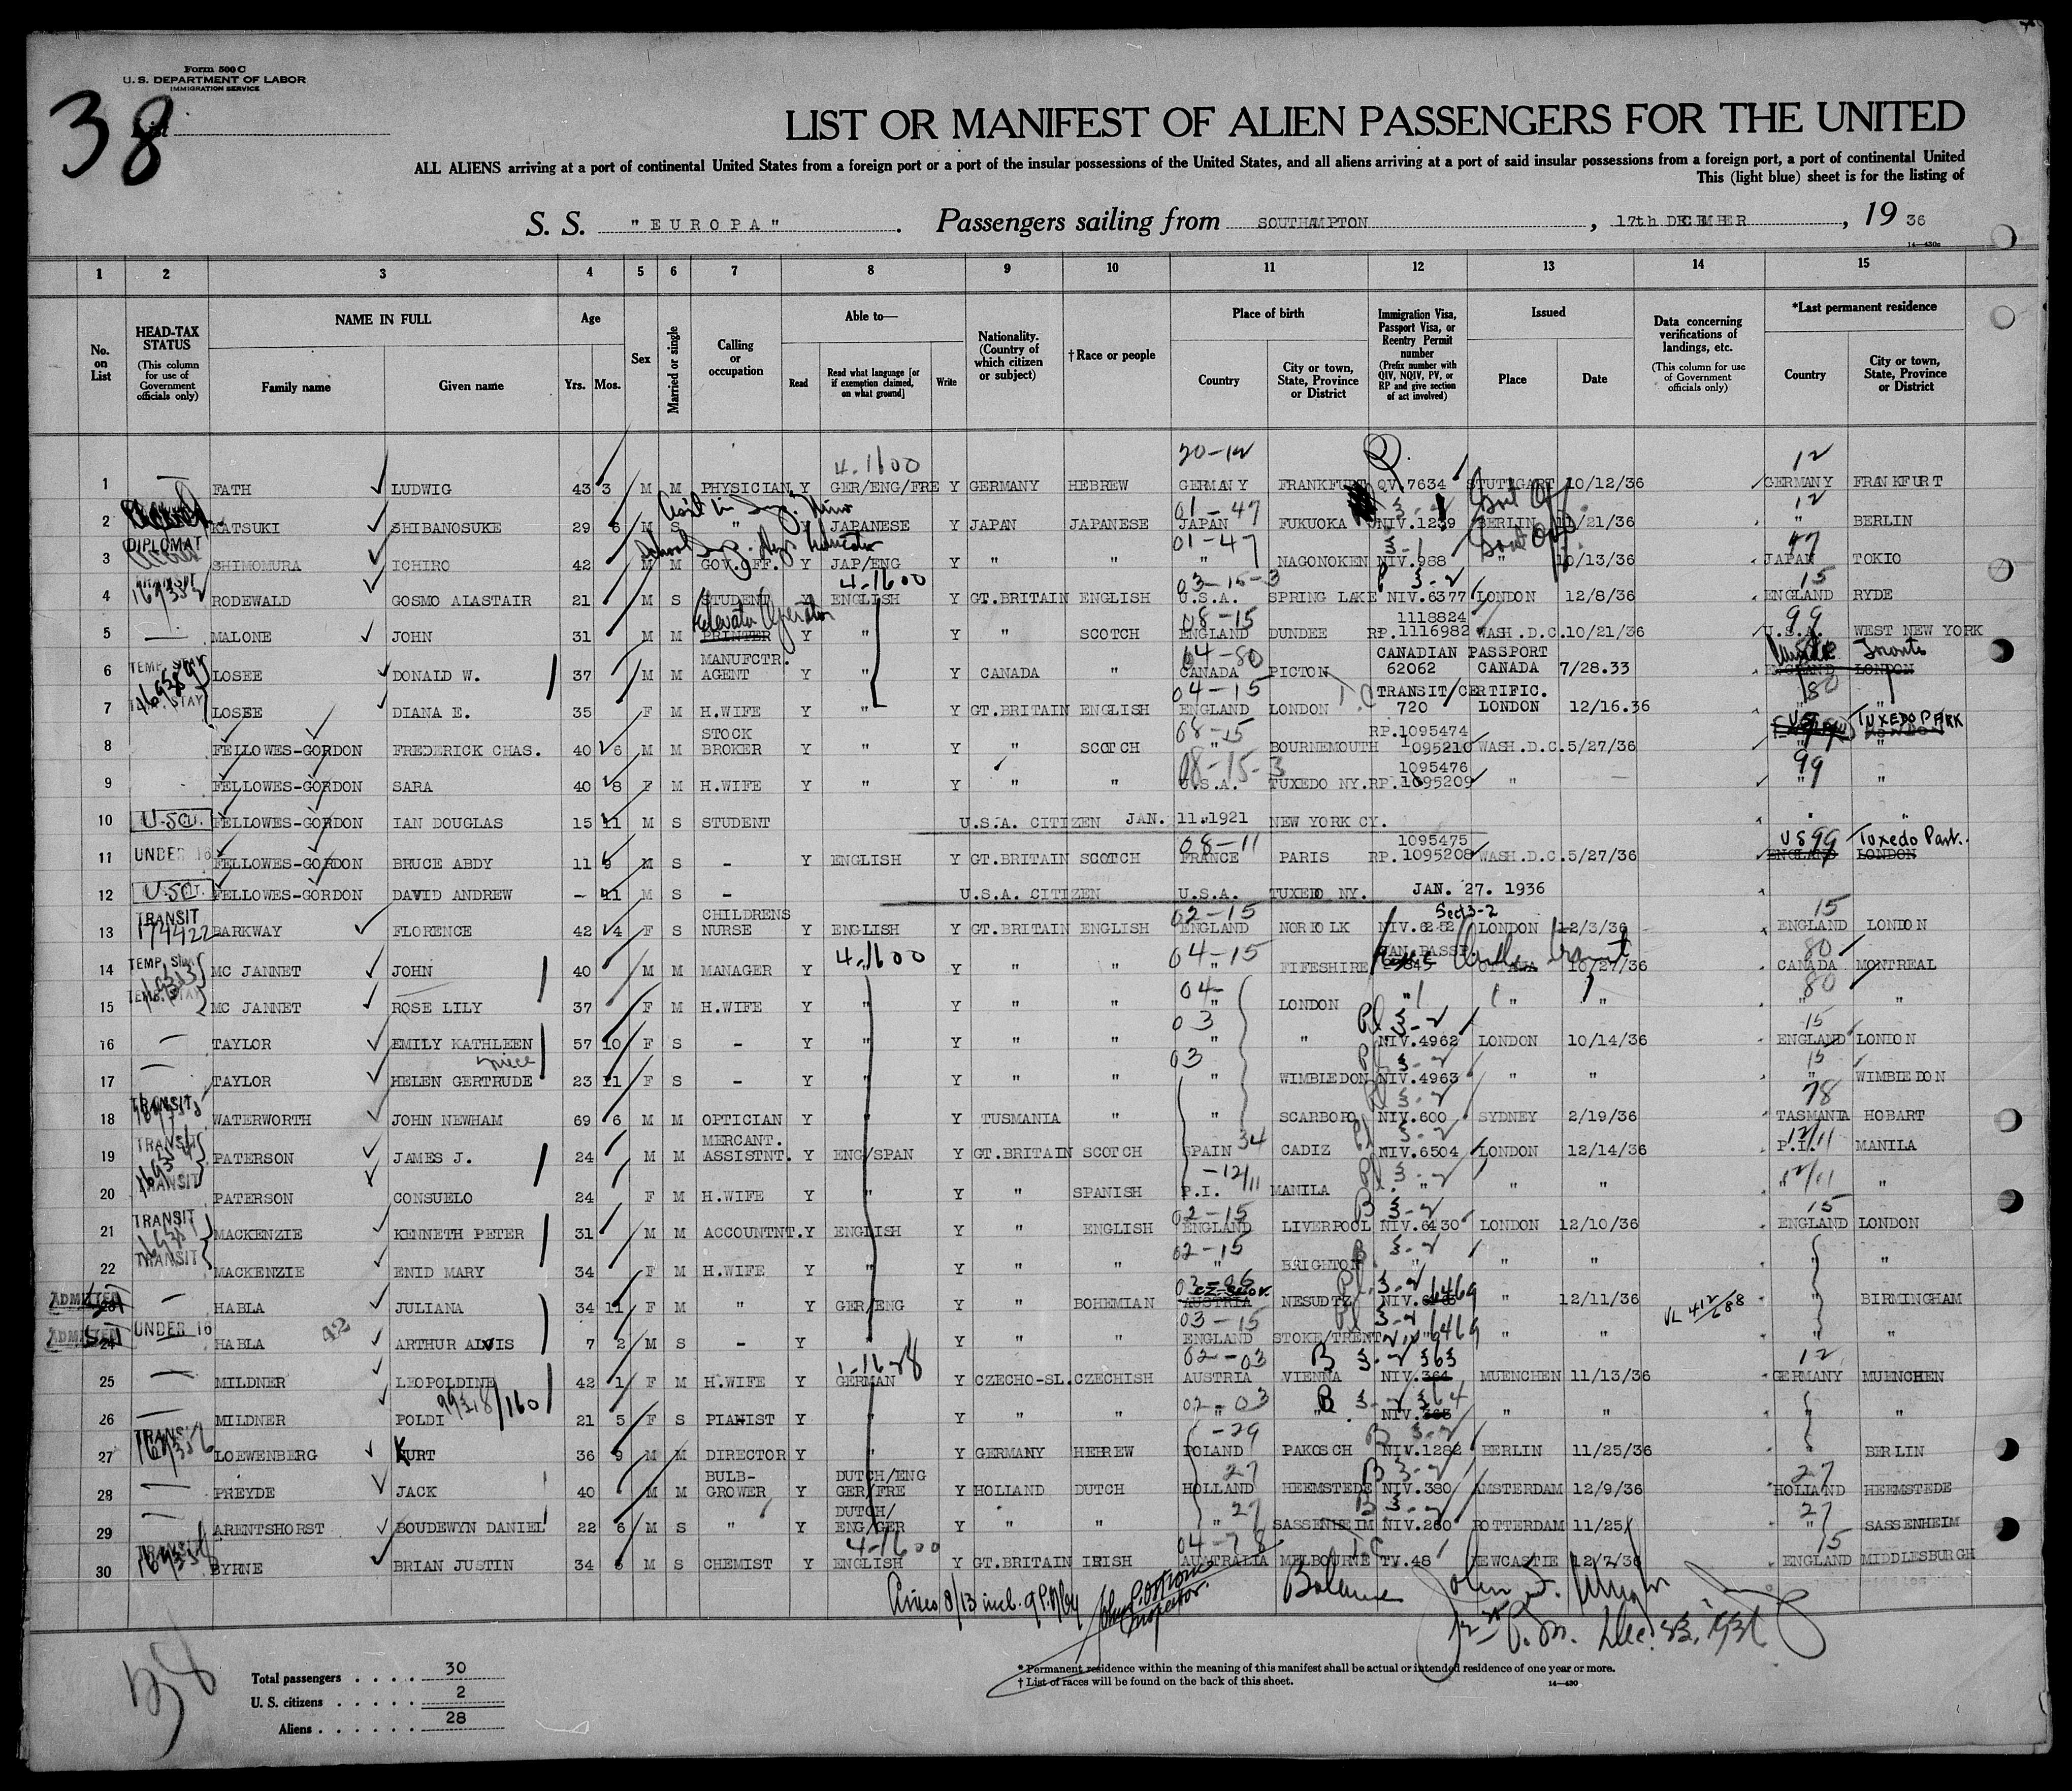 Form 500 C
U. S. DEPARTMENT OF LABOR
IMMIGRATION SERVICE
38
LIST OR MANIFEST OF ALIEN PASSENGERS FOR THE UNITED
ALL ALIENS arriving at a port of continental United States from a foreign port or a port of the insular possessions of the United States, and all aliens arriving at a port of said insular possessions from a foreign port, a port of continental United
This (light blue) sheet is for the listing of
S. S. "EUROPA". Passengers sailing from SOUTHAMPTON, 17th DECEMBER, 19 36
14—430c
1 2 3 4 5 6 7 8 9 10 11 12 13 14 15
No. on List
HEAD-TAX STATUS (This column for use of Government officials only)
NAME IN FULL
Family name
Given name
Age
Yrs. Mos.
Sex
Married or single
Calling or occupation
Able to—
Read
Read what language [or if exemption claimed, on what ground]
Write
Nationality. (Country of which citizen or subject)
†Race or people
Place of birth
Country
City or town, State, Province or District
Immigration Visa, Passport Visa, or Reentry Permit number (Prefix number with QIV, NQIV, PV, or RP and give section of act involved)
Issued
Place
Date
Data concerning verifications of landings, etc. (This column for use of Government officials only)
*Last permanent residence
Country
City or town, State, Province or District
4-1600 20-12 12
1 FATH LUDWIG 43 3 M M PHYSICIAN Y GER/ENG/FRE Y GERMANY HEBREW GERMANY FRANKFURT QV.7634 STUTTGART 10/12/36 GERMANY FRANKFURT
01-47 12
2 KATSUKI SHIBANOSUKE 29 6 M S " Y JAPANESE Y JAPAN JAPANESE JAPAN FUKUOKA NIV.1239 BERLIN 11/21/36 " BERLIN
DIPLOMAT 01-47 3-1 47
3 SHIMOMURA ICHIRO 42 M M GOV.OFF. Y JAP/ENG Y " " " NAGONOKEN NIV.988 " 10/13/36 JAPAN TOKIO
4-1600 03-15-3 3-2 15
4 RODEWALD GOSMO ALASTAIR 21 M S STUDENT Y ENGLISH Y GT.BRITAIN ENGLISH U.S.A. SPRING LAKE NIV.6377 LONDON 12/8/36 ENGLAND RYDE
Elevator Operator 08-15 1118824 99
5 MALONE JOHN 31 M M PRINTER Y " Y " SCOTCH ENGLAND DUNDEE RP.1116982 WASH.D.C. 10/21/36 U.S.A. WEST NEW YORK
TEMP. STAY MANUFCTR. 04-80 CANADIAN PASSPORT Toronto
6 LOSEE DONALD W. 37 M M AGENT Y " Y CANADA " CANADA PICTON 62062 CANADA 7/28.33 ENGLAND LONDON
04-15 TRANSIT/CERTIFIC. 80
7 LOSEE DIANA E. 35 F M H.WIFE Y " Y GT.BRITAIN ENGLISH ENGLAND LONDON 720 LONDON 12/16.36 " "
STOCK 08-15 RP.1095474 TUXEDO PARK
8 FELLOWES-GORDON FREDERICK CHAS. 40 6 M M BROKER Y " Y " SCOTCH " BOURNEMOUTH 1095210 WASH.D.C. 5/27/36 " "
08-15-3 1095476 99
9 FELLOWES-GORDON SARA 40 8 F M H.WIFE Y " Y " " U.S.A. TUXEDO NY. RP.1095209 " " "
10 FELLOWES-GORDON IAN DOUGLAS 15 11 M S STUDENT U.S.A. CITIZEN JAN. 11.1921 NEW YORK CY. " "
UNDER 16 08-11 1095475 US 99 Tuxedo Park
11 FELLOWES-GORDON BRUCE ABDY 11 9 M S - Y ENGLISH Y GT.BRITAIN SCOTCH FRANCE PARIS RP.1095208 WASH.D.C. 5/27/36 ENGLAND LONDON
12 USC FELLOWES-GORDON DAVID ANDREW - 11 M S - U.S.A. CITIZEN U.S.A. TUXEDO NY. JAN. 27. 1936
TRANSIT CHILDRENS 02-15 Sect 3-2 15
13 174422 PARKWAY FLORENCE 42 4 F S NURSE Y ENGLISH Y GT.BRITAIN ENGLISH ENGLAND NORFOLK NIV.6252 LONDON 12/3/36 ENGLAND LONDON
4-1600 04-15 CAN.PASSP. 80
14 MC JANNET JOHN 40 M M MANAGER Y " Y " " " FIFESHIRE OTTAWA 10/27/36 CANADA MONTREAL
TEMP. STAY 04- 80
15 MC JANNET ROSE LILY 37 F M H.WIFE Y " Y " " " LONDON " " " " "
03 3-2 15
16 TAYLOR EMILY KATHLEEN 57 10 F S - Y " Y " " " " NIV.4962 LONDON 10/14/36 ENGLAND LONDON
niece 03 3-2 15
17 TAYLOR HELEN GERTRUDE 23 11 F S - Y " Y " " " WIMBLEDON NIV.4963 " " " WIMBLEDON
TRANSIT 3-2 78
18 WATERWORTH JOHN NEWHAM 69 6 M M OPTICIAN Y " Y TUSMANIA " " SCARBORO NIV.600 SYDNEY 2/19/36 TASMANIA HOBART
TRANSIT MERCANT. 34 3-2 12/11
19 PATERSON JAMES J. 24 M M ASSISTNT. Y ENG/SPAN Y GT.BRITAIN SCOTCH SPAIN CADIZ NIV.6504 LONDON 12/14/36 P.I. MANILA
TRANSIT -12/11 3-2 12/11
20 PATERSON CONSUELO 24 F M H.WIFE Y " Y " SPANISH P.I. MANILA " " " " "
TRANSIT 02-15 3-2 15
21 MACKENZIE KENNETH PETER 31 M M ACCOUNTNT. Y ENGLISH Y " ENGLISH ENGLAND LIVERPOOL NIV.6430 LONDON 12/10/36 ENGLAND LONDON
TRANSIT 02-15 3-2
22 MACKENZIE ENID MARY 34 F M H.WIFE Y " Y " " " BRIGHTON " " " " "
ADMITTED 3-2 6469
23 HABLA JULIANA 34 11 F M " Y GER/ENG Y " BOHEMIAN AUSTRIA NESUDTZ NIV. " 12/11/36 " BIRMINGHAM
ADMITTED UNDER 16 42 03-15 3-2 6469
24 HABLA ARTHUR ALOIS 7 2 M S - Y " Y " " ENGLAND STOKE/TRENT " " " " "
02-03 3-2 363 12
25 MILDNER LEOPOLDINE 42 1 F M H.WIFE Y GERMAN Y CZECHO-SL. CZECHISH AUSTRIA VIENNA NIV.364 MUENCHEN 11/13/36 GERMANY MUENCHEN
02-03 3-2 364
26 MILDNER POLDI 21 5 F S PIANIST Y " Y " " " " NIV.365 " " " "
TRANSIT -29 3-2
27 LOEWENBERG KURT 36 9 M M DIRECTOR Y " Y GERMANY HEBREW POLAND PAKOSCH NIV.1282 BERLIN 11/25/36 " BERLIN
BULB- DUTCH/ENG 27 3-2 27
28 PREYDE JACK 40 M M GROWER Y GER/FRE Y HOLLAND DUTCH HOLLAND HEEMSTEDE NIV.380 AMSTERDAM 12/9/36 HOLLAND HEEMSTEDE
DUTCH/ 27 3-2 27
29 ARENTSHORST BOUDEWYN DANIEL 22 6 M S " Y ENG/GER Y " " " SASSENHEIM NIV.260 ROTTERDAM 11/25/ " SASSENHEIM
TRANSIT 4-1600 04-78 15
30 BYRNE BRIAN JUSTIN 34 6 M S CHEMIST Y ENGLISH Y GT.BRITAIN IRISH AUSTRALIA MELBOURNE TV.48 NEWCASTLE 12/7/36 ENGLAND MIDDLESBURGH
Inspector. Balance John
P.M. Dec. 1936
38
Total passengers . . . . 30
U. S. citizens . . . . . 2
Aliens . . . . . . 28
* Permanent residence within the meaning of this manifest shall be actual or intended residence of one year or more.
† List of races will be found on the back of this sheet.
14—430